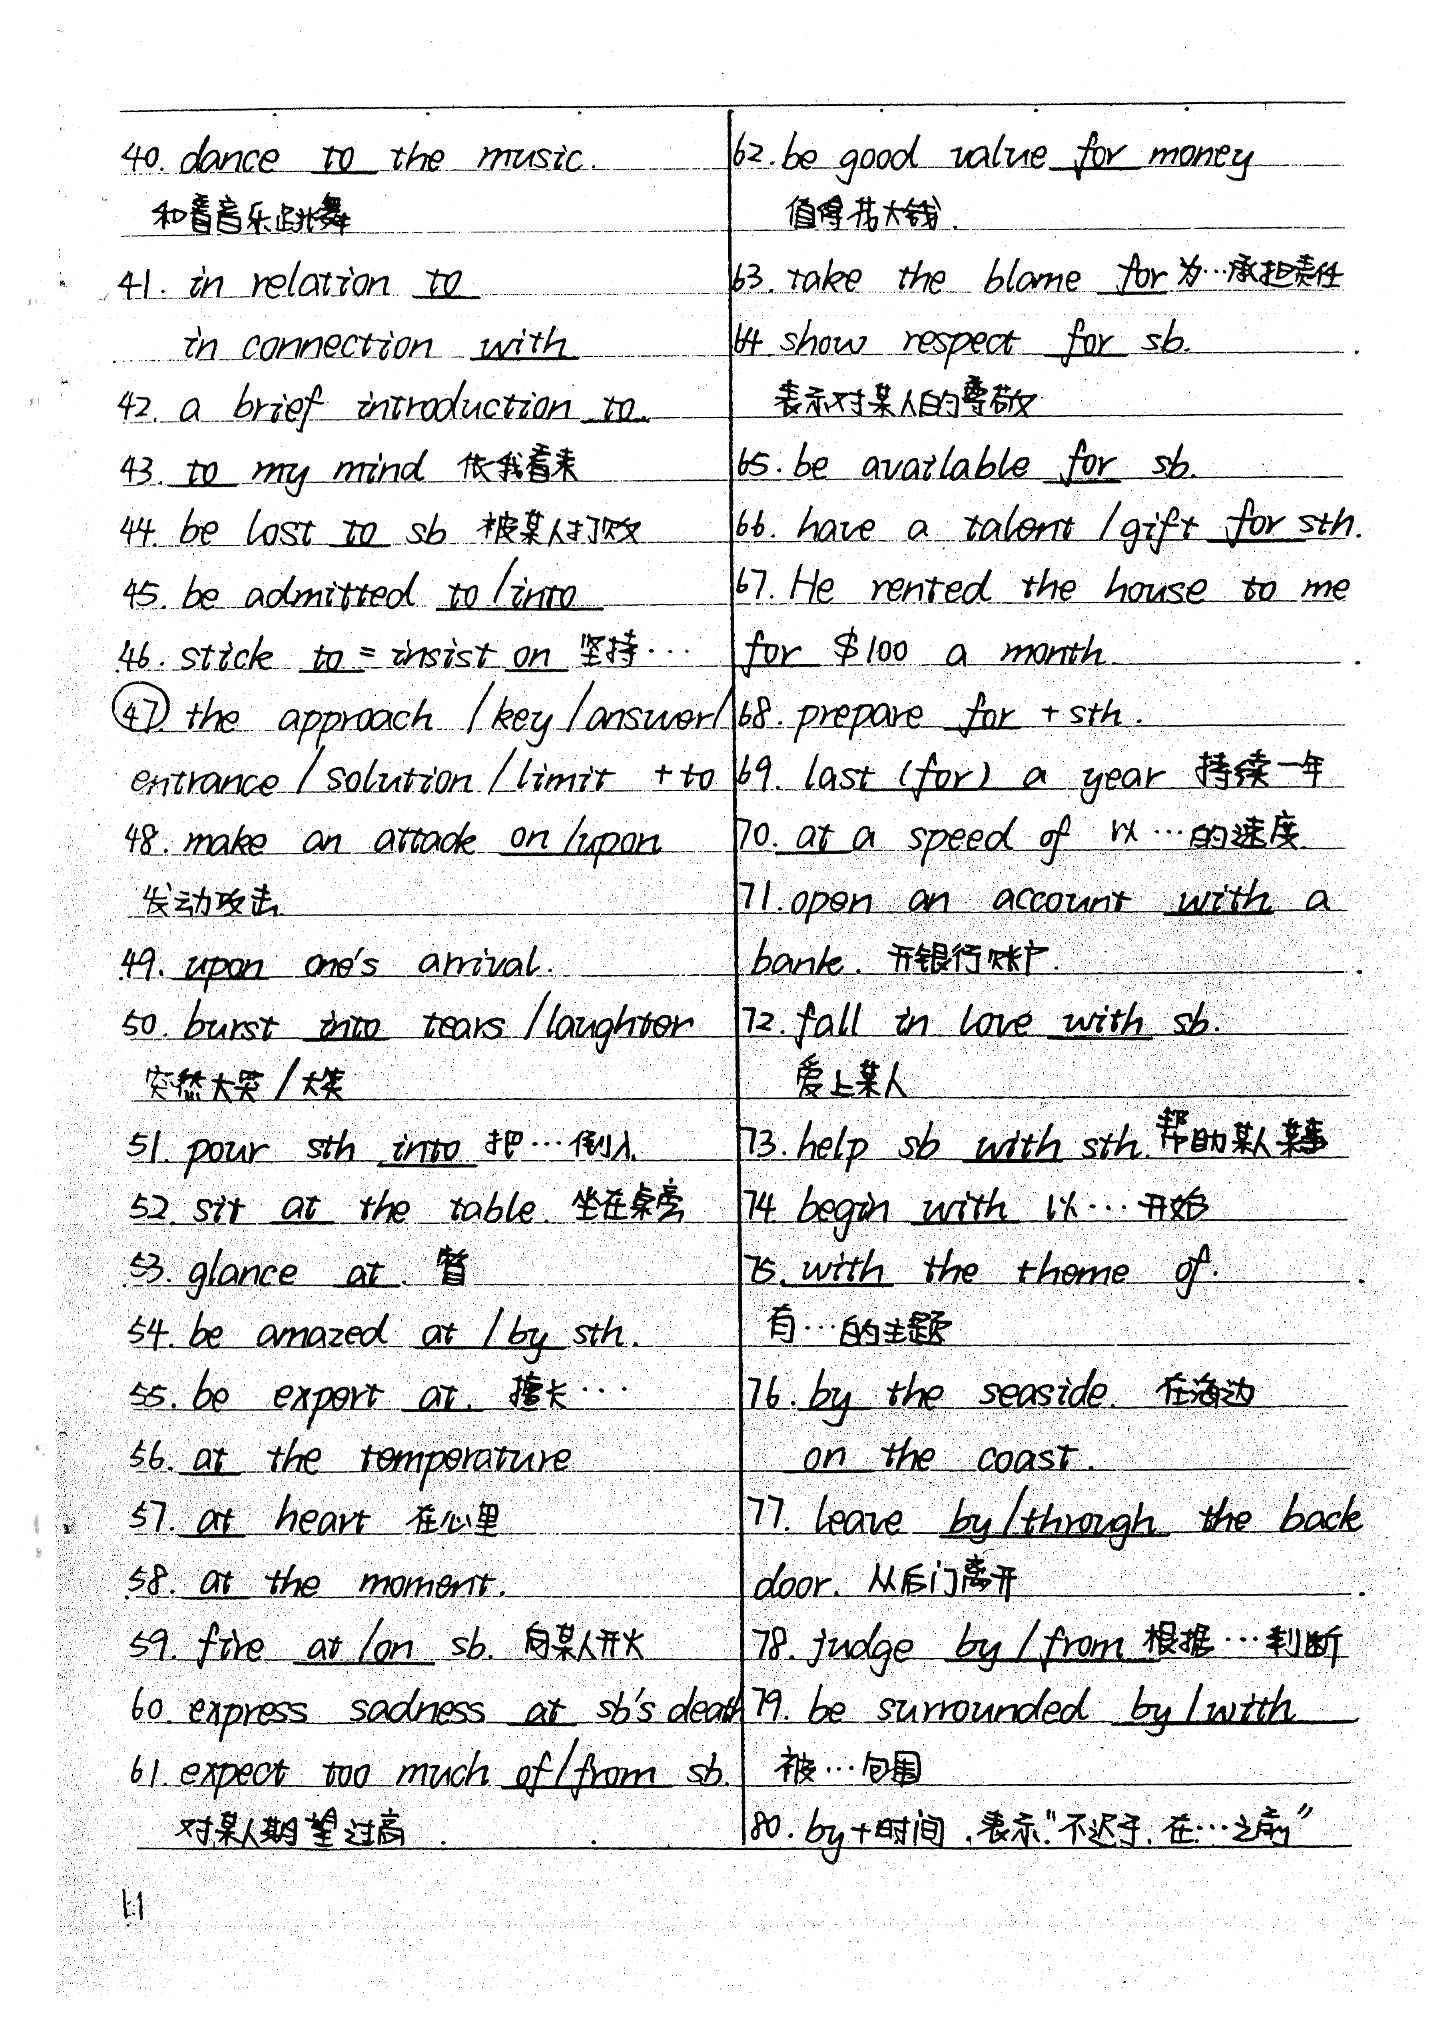 40. dance to the music.
和着音乐跳舞
41. in relation to
in connection with
42. a brief introduction to.
43. to my mind 依我看来
44. be lost to sb 被某人打败
45. be admitted to/into
46. stick to = insist on 坚持…
47. the approach /key/answer/
entrance/solution/limit +to
48. make an attack on/upon
发动攻击
49. upon one's arrival.
50. burst into tears/laughter
突然大哭/大笑
51. pour sth into 把…倒入
52. sit at the table. 坐在桌旁
53. glance at. 瞥
54. be amazed at/by sth.
55. be expert at. 擅长…
56. at the temperature
57. at heart 在心里
58. at the moment.
59. fire at/on sb. 向某人开火
60. express sadness at sb's death
61. expect too much of/from sb.
对某人期望过高
62. be good value for money
值得花大钱.
63. take the blame for 为…承担责任
64 show respect for sb.
表示对某人的尊敬
65. be available for sb.
66. have a talent/gift for sth.
67. He rented the house to me
for $100 a month.
68. prepare for + sth.
69. last (for) a year 持续一年
70. at a speed of 以…的速度.
71. open an account with a
bank. 开银行账户.
72. fall in love with sb.
爱上某人
73. help sb with sth. 帮助某人某事
74 begin with 以…开始
75. with the theme of.
有…的主题
76. by the seaside. 在海边
on the coast.
77. leave by/through the back
door. 从后门离开
78. judge by/from 根据…判断
79. be surrounded by/with
被…包围
80. by+时间.表示"不迟于.在…之前"